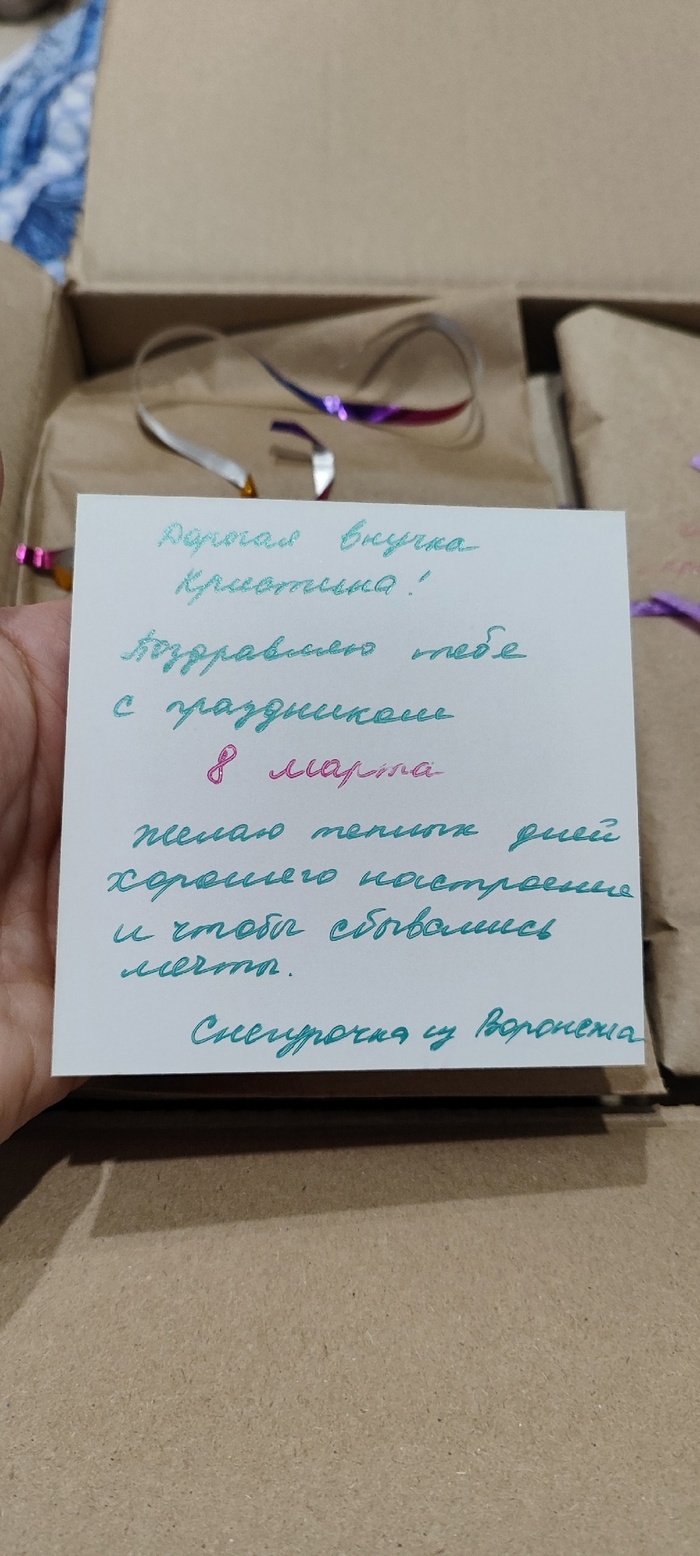 Дорогая внучка
Кристина!
Поздравляю тебе
с праздником
8 марта
Желаю теплых дней
хорошего настроение
и чтобы сбывались
мечты.
Снегурочка из Воронежа